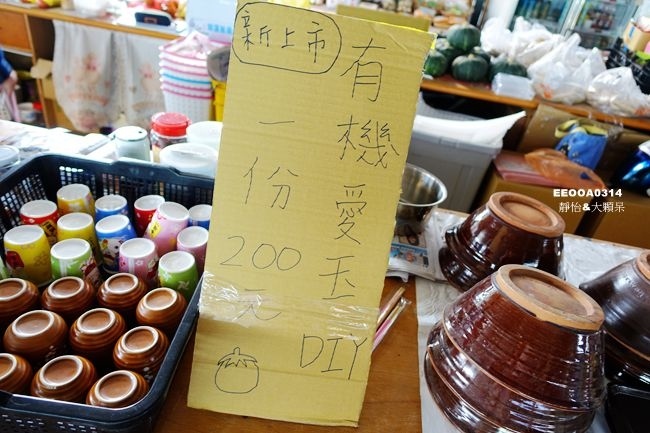 新上市
有機愛玉DIY
一份200元
EEOOA0314
靜怡&大顆呆